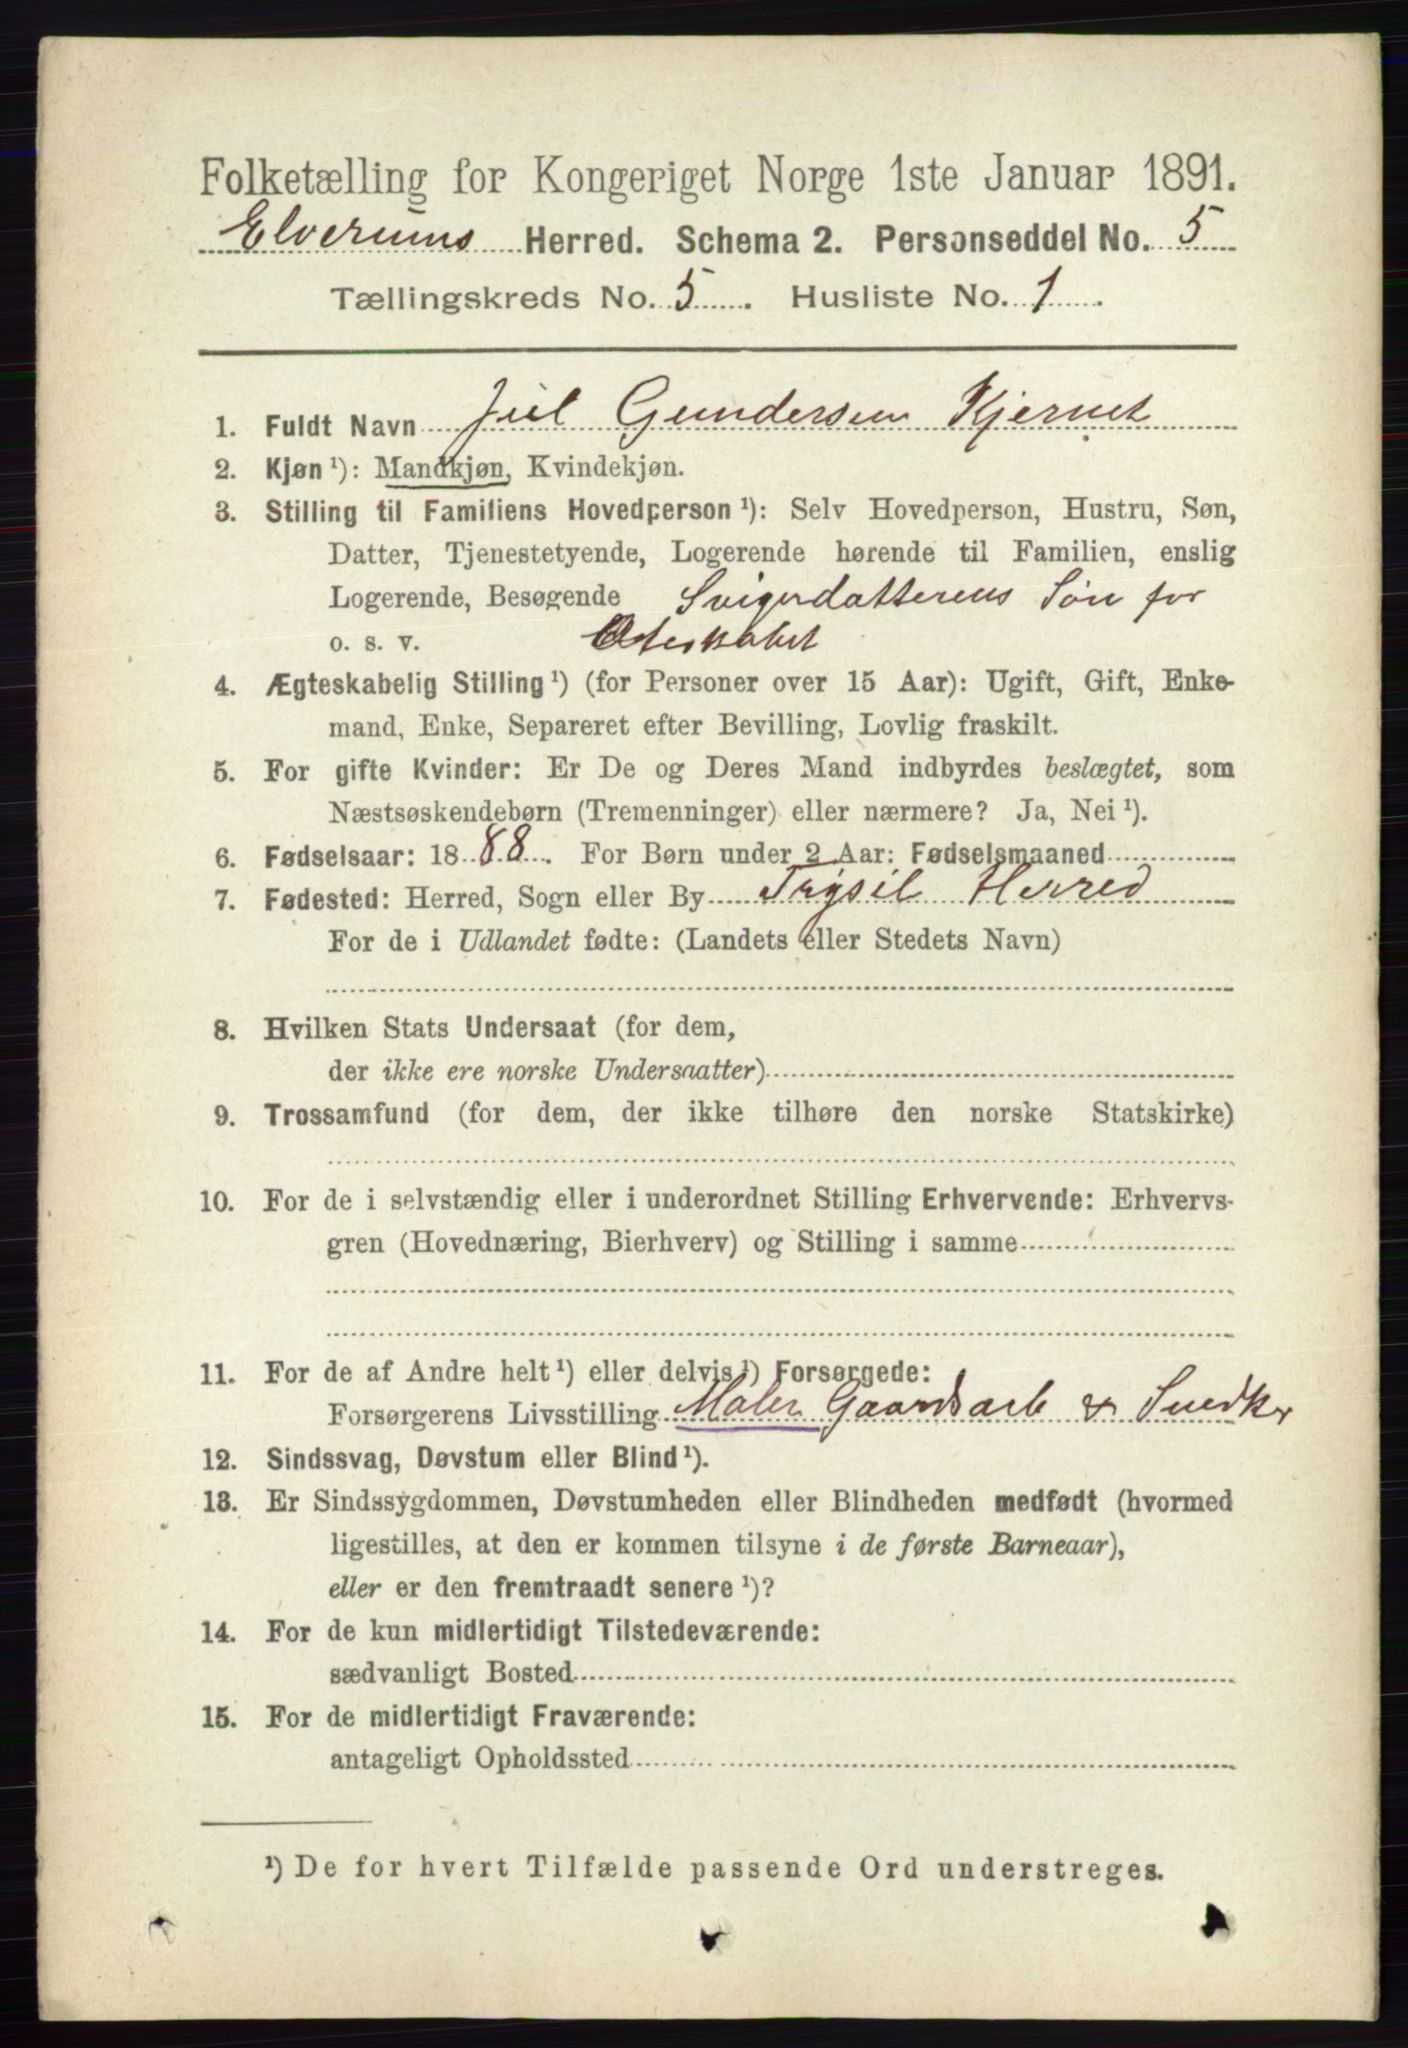 Folketælling for Kongeriget Norge 1ste Januar 1891.
Elverums Herred. Schema 2. Personseddel No. 5
Tællingskreds No. 5. Husliste No. 1.
1. Fuldt Navn Juel Gundersen Kjernet
2. Kjøn ¹): Mandkjøn, Kvindekjøn.
3. Stilling til Familiens Hovedperson ¹): Selv Hovedperson, Hustru, Søn,
Datter, Tjenestetyende, Logerende hørende til Familien, enslig
Logerende, Besøgende Svigerdatterens Søn før
o. s. v.
4. Ægteskabelig Stilling ¹) (for Personer over 15 Aar): Ugift, Gift, Enke-
mand, Enke, Separeret efter Bevilling, Lovlig fraskilt.
5. For gifte Kvinder: Er De og Deres Mand indbyrdes beslægtet, som
Næstsøskendebørn (Tremenninger) eller nærmere? Ja, Nei ¹).
6. Fødselsaar: 1888. For Børn under 2 Aar: Fødselsmaaned
7. Fødested: Herred, Sogn eller By Trysil Herred
For de i Udlandet fødte: (Landets eller Stedets Navn)
8. Hvilken Stats Undersaat (for dem,
der ikke ere norske Undersaatter)
9. Trossamfund (for dem, der ikke tilhøre den norske Statskirke)
10. For de i selvstændig eller i underordnet Stilling Erhvervende: Erhvervs-
gren (Hovednæring, Bierhverv) og Stilling i samme
11. For de af Andre helt ¹) eller delvis ¹) Forsørgede:
Forsørgerens Livsstilling Maler Gaardsarb & Snedker
12. Sindssvag, Døvstum eller Blind ¹).
13. Er Sindssygdommen, Døvstumheden eller Blindheden medfødt (hvormed
ligestilles, at den er kommen tilsyne i de første Barneaar),
eller er den fremtraadt senere ¹)?
14. For de kun midlertidigt Tilstedeværende:
sædvanligt Bosted
15. For de midlertidigt Fraværende:
antageligt Opholdssted
¹) De for hvert Tilfælde passende Ord understreges.